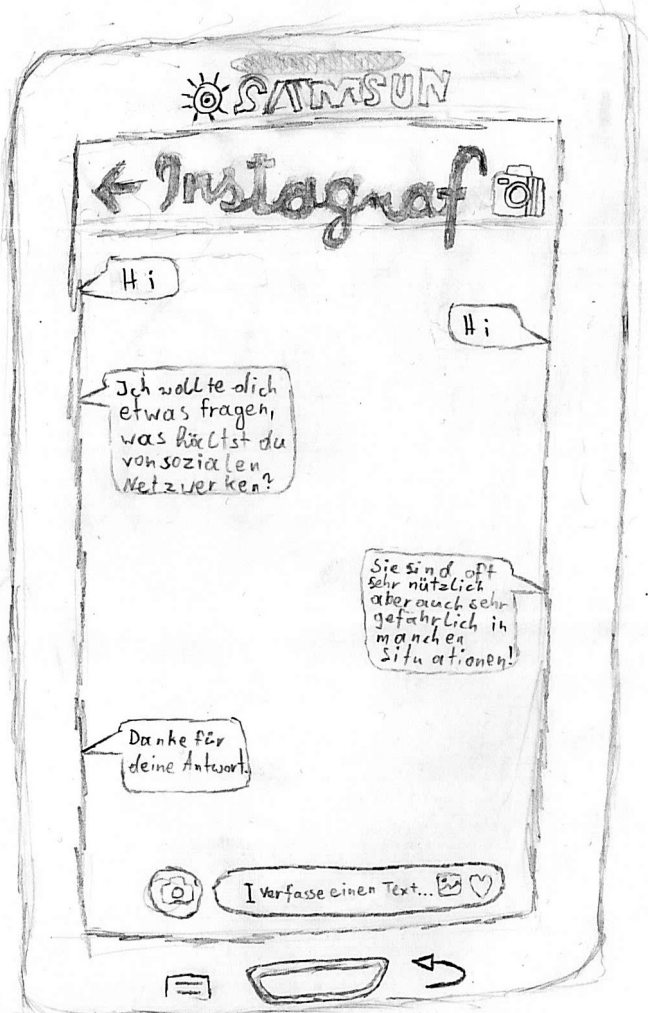 SAMSUN
Instagraf
Hi
Hi
Ich wollte dich
etwas fragen,
was hältst du
von sozialen
Netzwerken?
Sie sind oft
sehr nützlich
aber auch sehr
gefährlich in
manchen
Situationen!
Danke für
deine Antwort.
I verfasse einen Text...